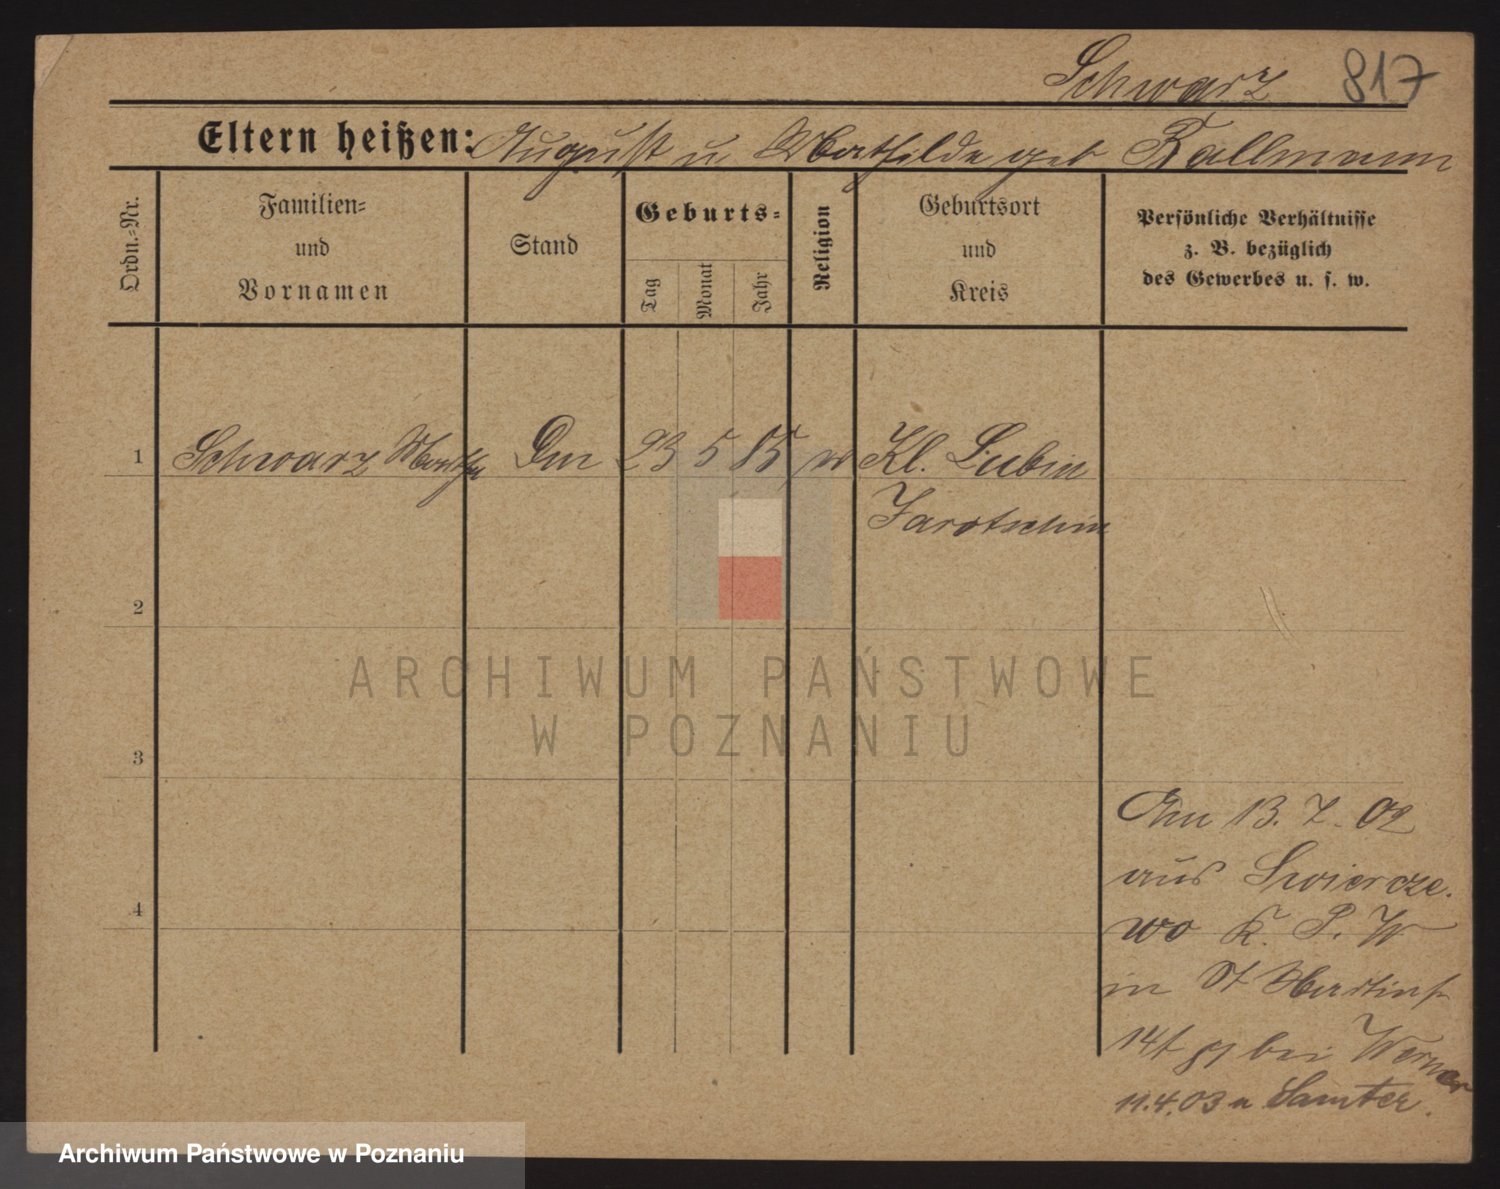 Schwarz 817
Eltern heißen: August u Mathilde geb Kallmann
Ordn.-Nr.
Familien-
und
Vornamen
Stand
Geburts-
Tag
Monat
Jahr
Religion
Geburtsort
und
Kreis
Persönliche Verhältnisse
z. B. bezüglich
des Gewerbes u. s. w.
1 Schwarz Martha 23 5 85 Kl. Lubin
Jarotschin
2
3
4
Am 13. 7. 02
aus Swiercze.
wo K. P. W
in St Martinst
14 bei Werner
11.4.03 n Samter.
ARCHIWUM PAŃSTWOWE
W POZNANIU
Archiwum Państwowe w Poznaniu